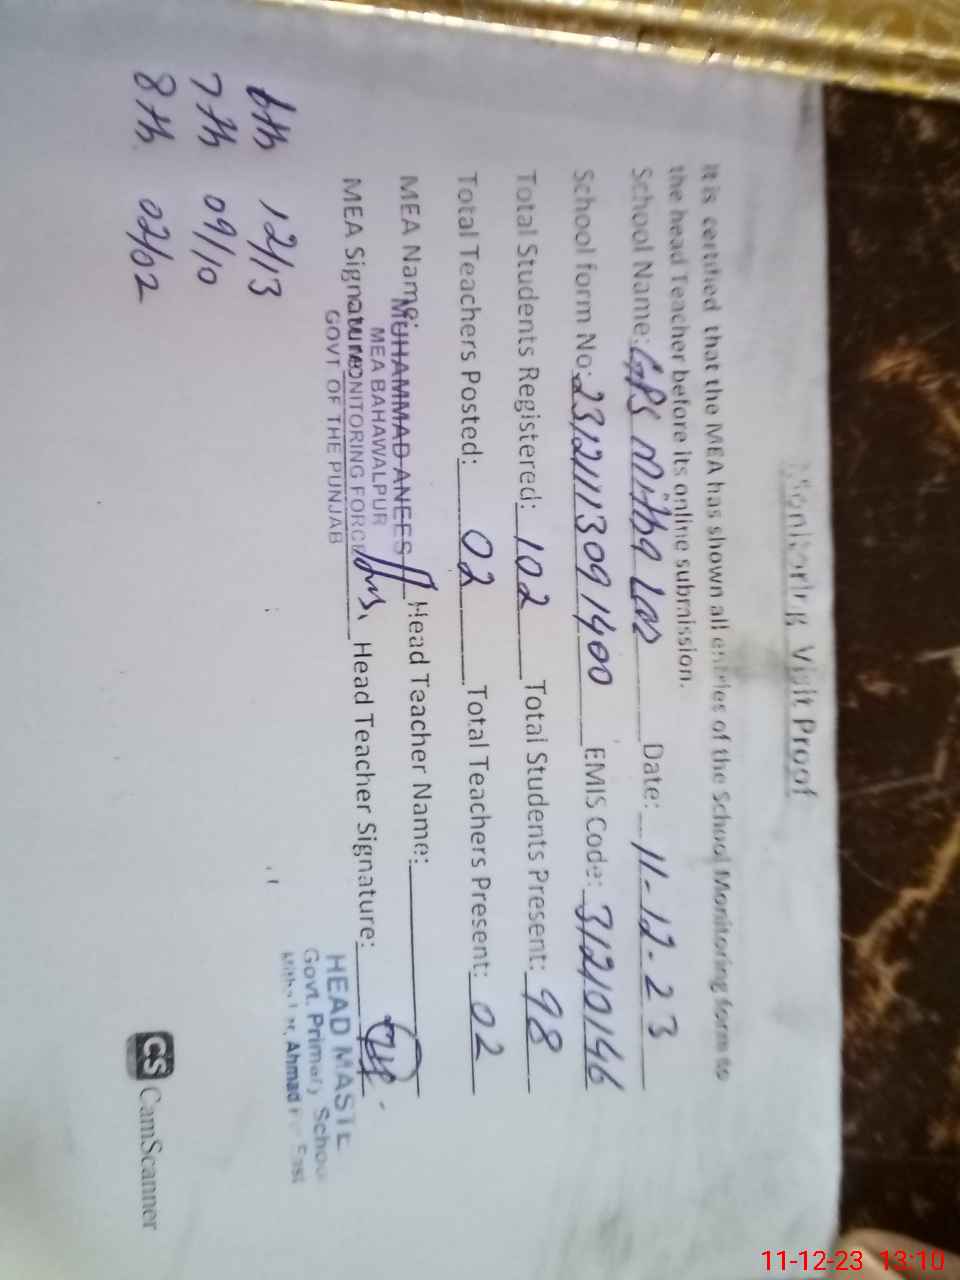 Monitoring Visit Proof
It is certified that the MEA has shown all entries of the School Monitoring form to
the head Teacher before its online submission.
School Name: GPS Mitha Lar Date: 11-12-23
School form No: 23121113091400 EMIS Code: 31210146
Total Students Registered: 102 Total Students Present: 98
Total Teachers Posted: 02 Total Teachers Present: 02
MEA Name: MUHAMMAD ANEES Head Teacher Name:
MEA BAHAWALPUR
MEA Signature: MONITORING FORCE Head Teacher Signature:
GOVT OF THE PUNJAB
HEAD MASTE
Govt. Primary School
Ahmad East
6th 12/13
7th 09/10
8th 02/02
CS CamScanner
11-12-23 13:10